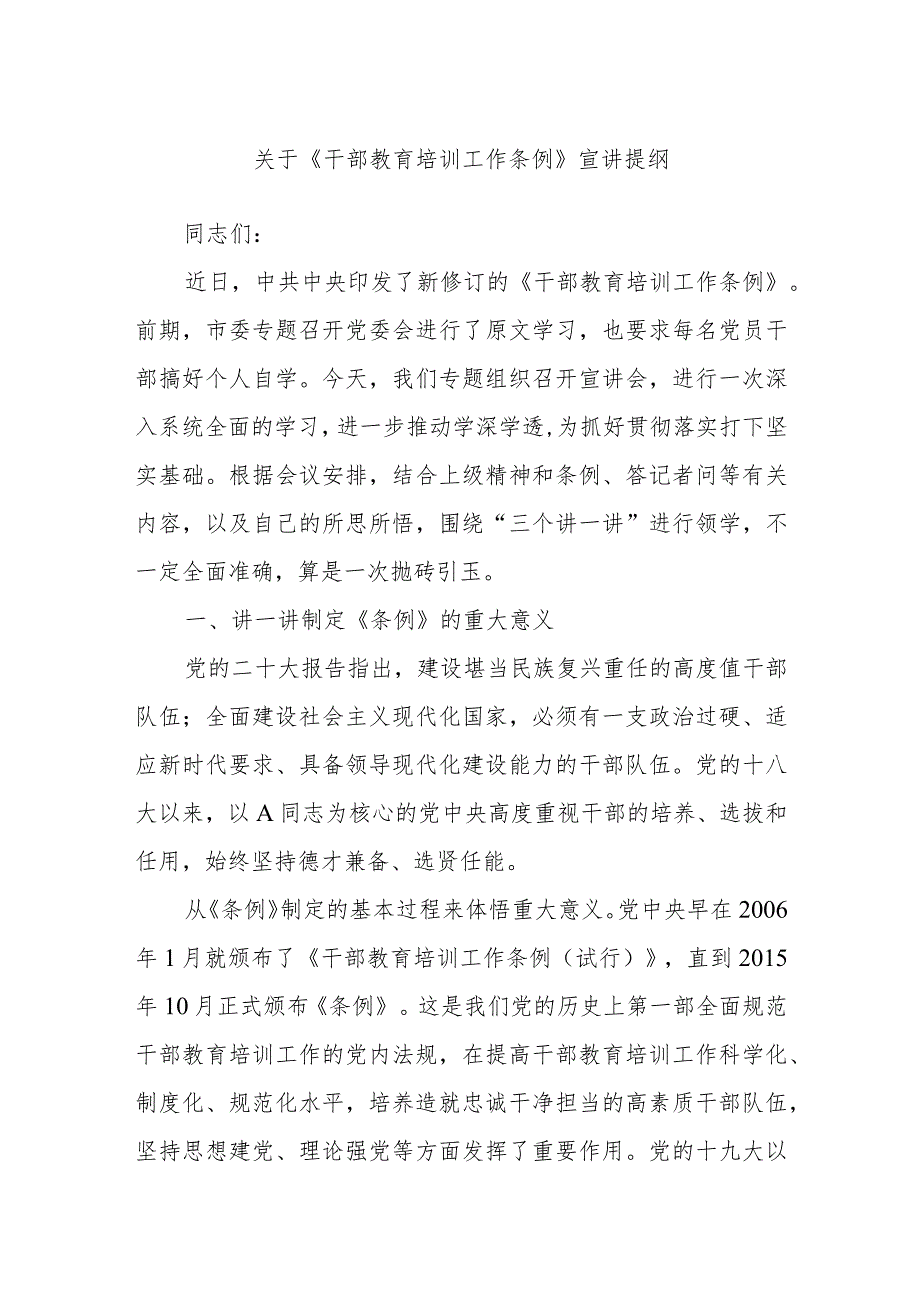 关于《干部教育培训工作条例》宣讲提纲
同志们：
近日，中共中央印发了新修订的《干部教育培训工作条例》。
前期，市委专题召开党委会进行了原文学习，也要求每名党员干
部搞好个人自学。今天，我们专题组织召开宣讲会，进行一次深
入系统全面的学习，进一步推动学深学透,为抓好贯彻落实打下坚
实基础。根据会议安排，结合上级精神和条例、答记者问等有关
内容，以及自己的所思所悟，围绕“三个讲一讲”进行领学，不
一定全面准确，算是一次抛砖引玉。
一、讲一讲制定《条例》的重大意义
党的二十大报告指出，建设堪当民族复兴重任的高度值干部
队伍；全面建设社会主义现代化国家，必须有一支政治过硬、适
应新时代要求、具备领导现代化建设能力的干部队伍。党的十八
大以来，以A同志为核心的党中央高度重视干部的培养、选拔和
任用，始终坚持德才兼备、选贤任能。
从《条例》制定的基本过程来体悟重大意义。党中央早在2006
年1月就颁布了《干部教育培训工作条例（试行）》，直到2015
年10月正式颁布《条例》。这是我们党的历史上第一部全面规范
干部教育培训工作的党内法规，在提高干部教育培训工作科学化、
制度化、规范化水平，培养造就忠诚干净担当的高素质干部队伍，
坚持思想建党、理论强党等方面发挥了重要作用。党的十九大以